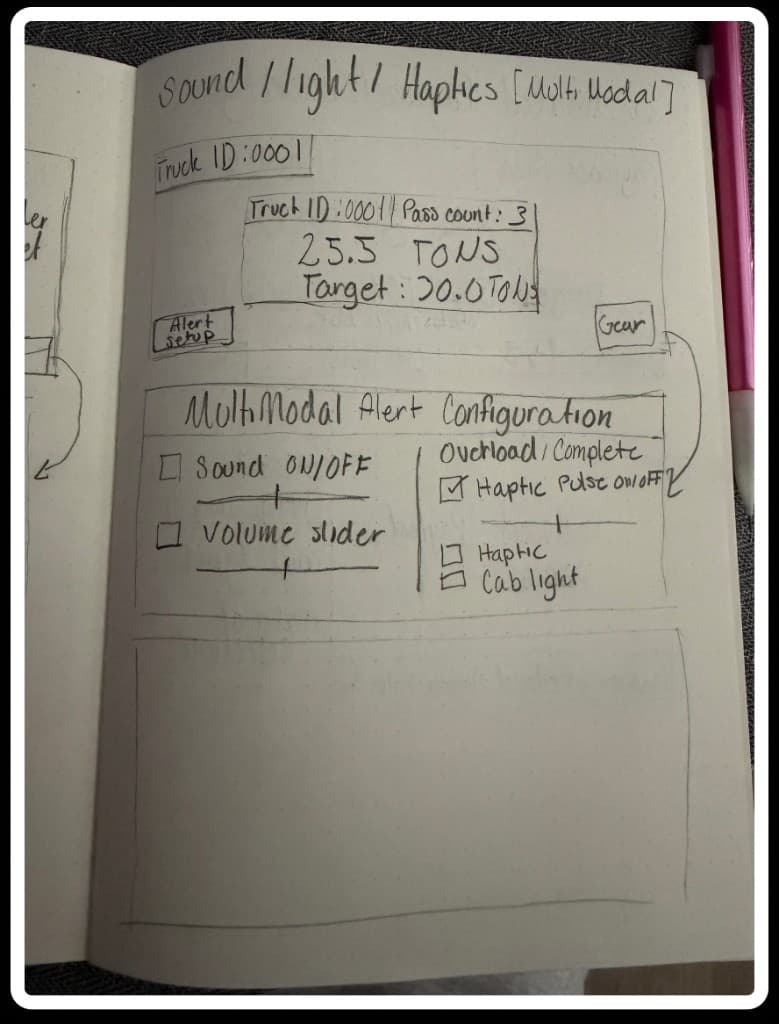 Sound / light / Haptics [Multi Modal]
Truck ID:0001
Truck ID:0001 | Pass count: 3
25.5 TONS
Target: 30.0 TONS
Alert
setup
Gear
MultiModal Alert Configuration
Sound ON/OFF
Volume slider
Overload/Complete
Haptic Pulse on/off
Haptic
Cab light